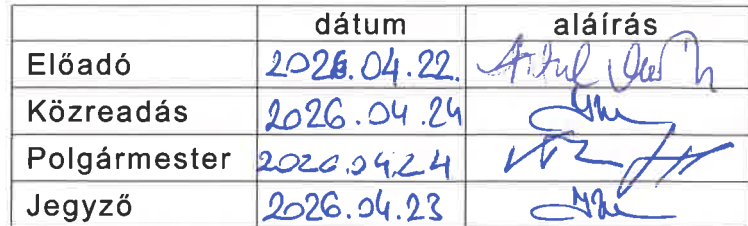 dátum aláírás
Előadó 2026.04.22.
Közreadás 2026.04.24
Polgármester 2026.04.24
Jegyző 2026.04.23